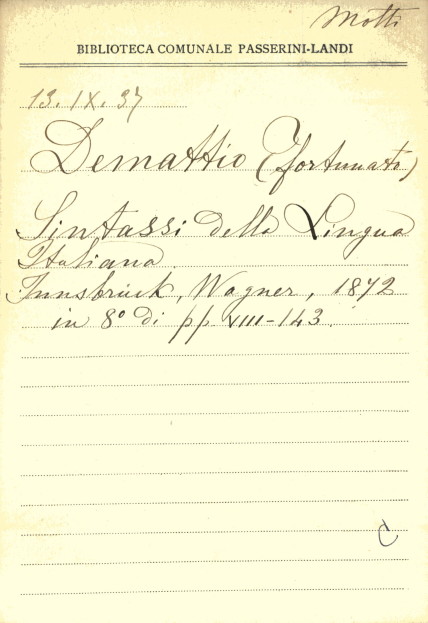 Motti
BIBLIOTECA COMUNALE PASSERINI-LANDI
13. IX. 37
Demattio (Fortunato)
Sintassi della Lingua
Italiana
Innsbruck, Wagner, 1872
in 8º di pp VIII-143.
C